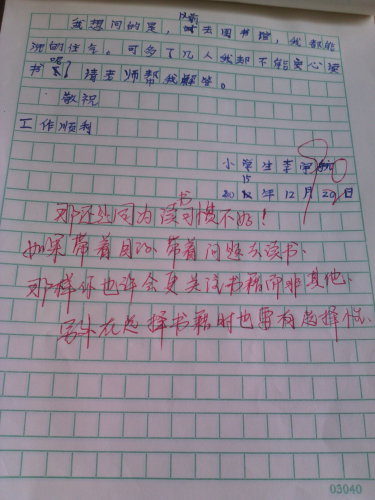 我想问的是，以前去图书馆，我都能
沉的住气。可多了几人我却不能安心读
书呢？请老师帮我解答。
敬祝
工作顺利
小学生李
年12月29日
那还是因为读书习惯不好！
如果带着目的、带着问题去读书、
那样你也许会更关注书籍而非其他、
另外在选择书籍时也要有选择性、
03040